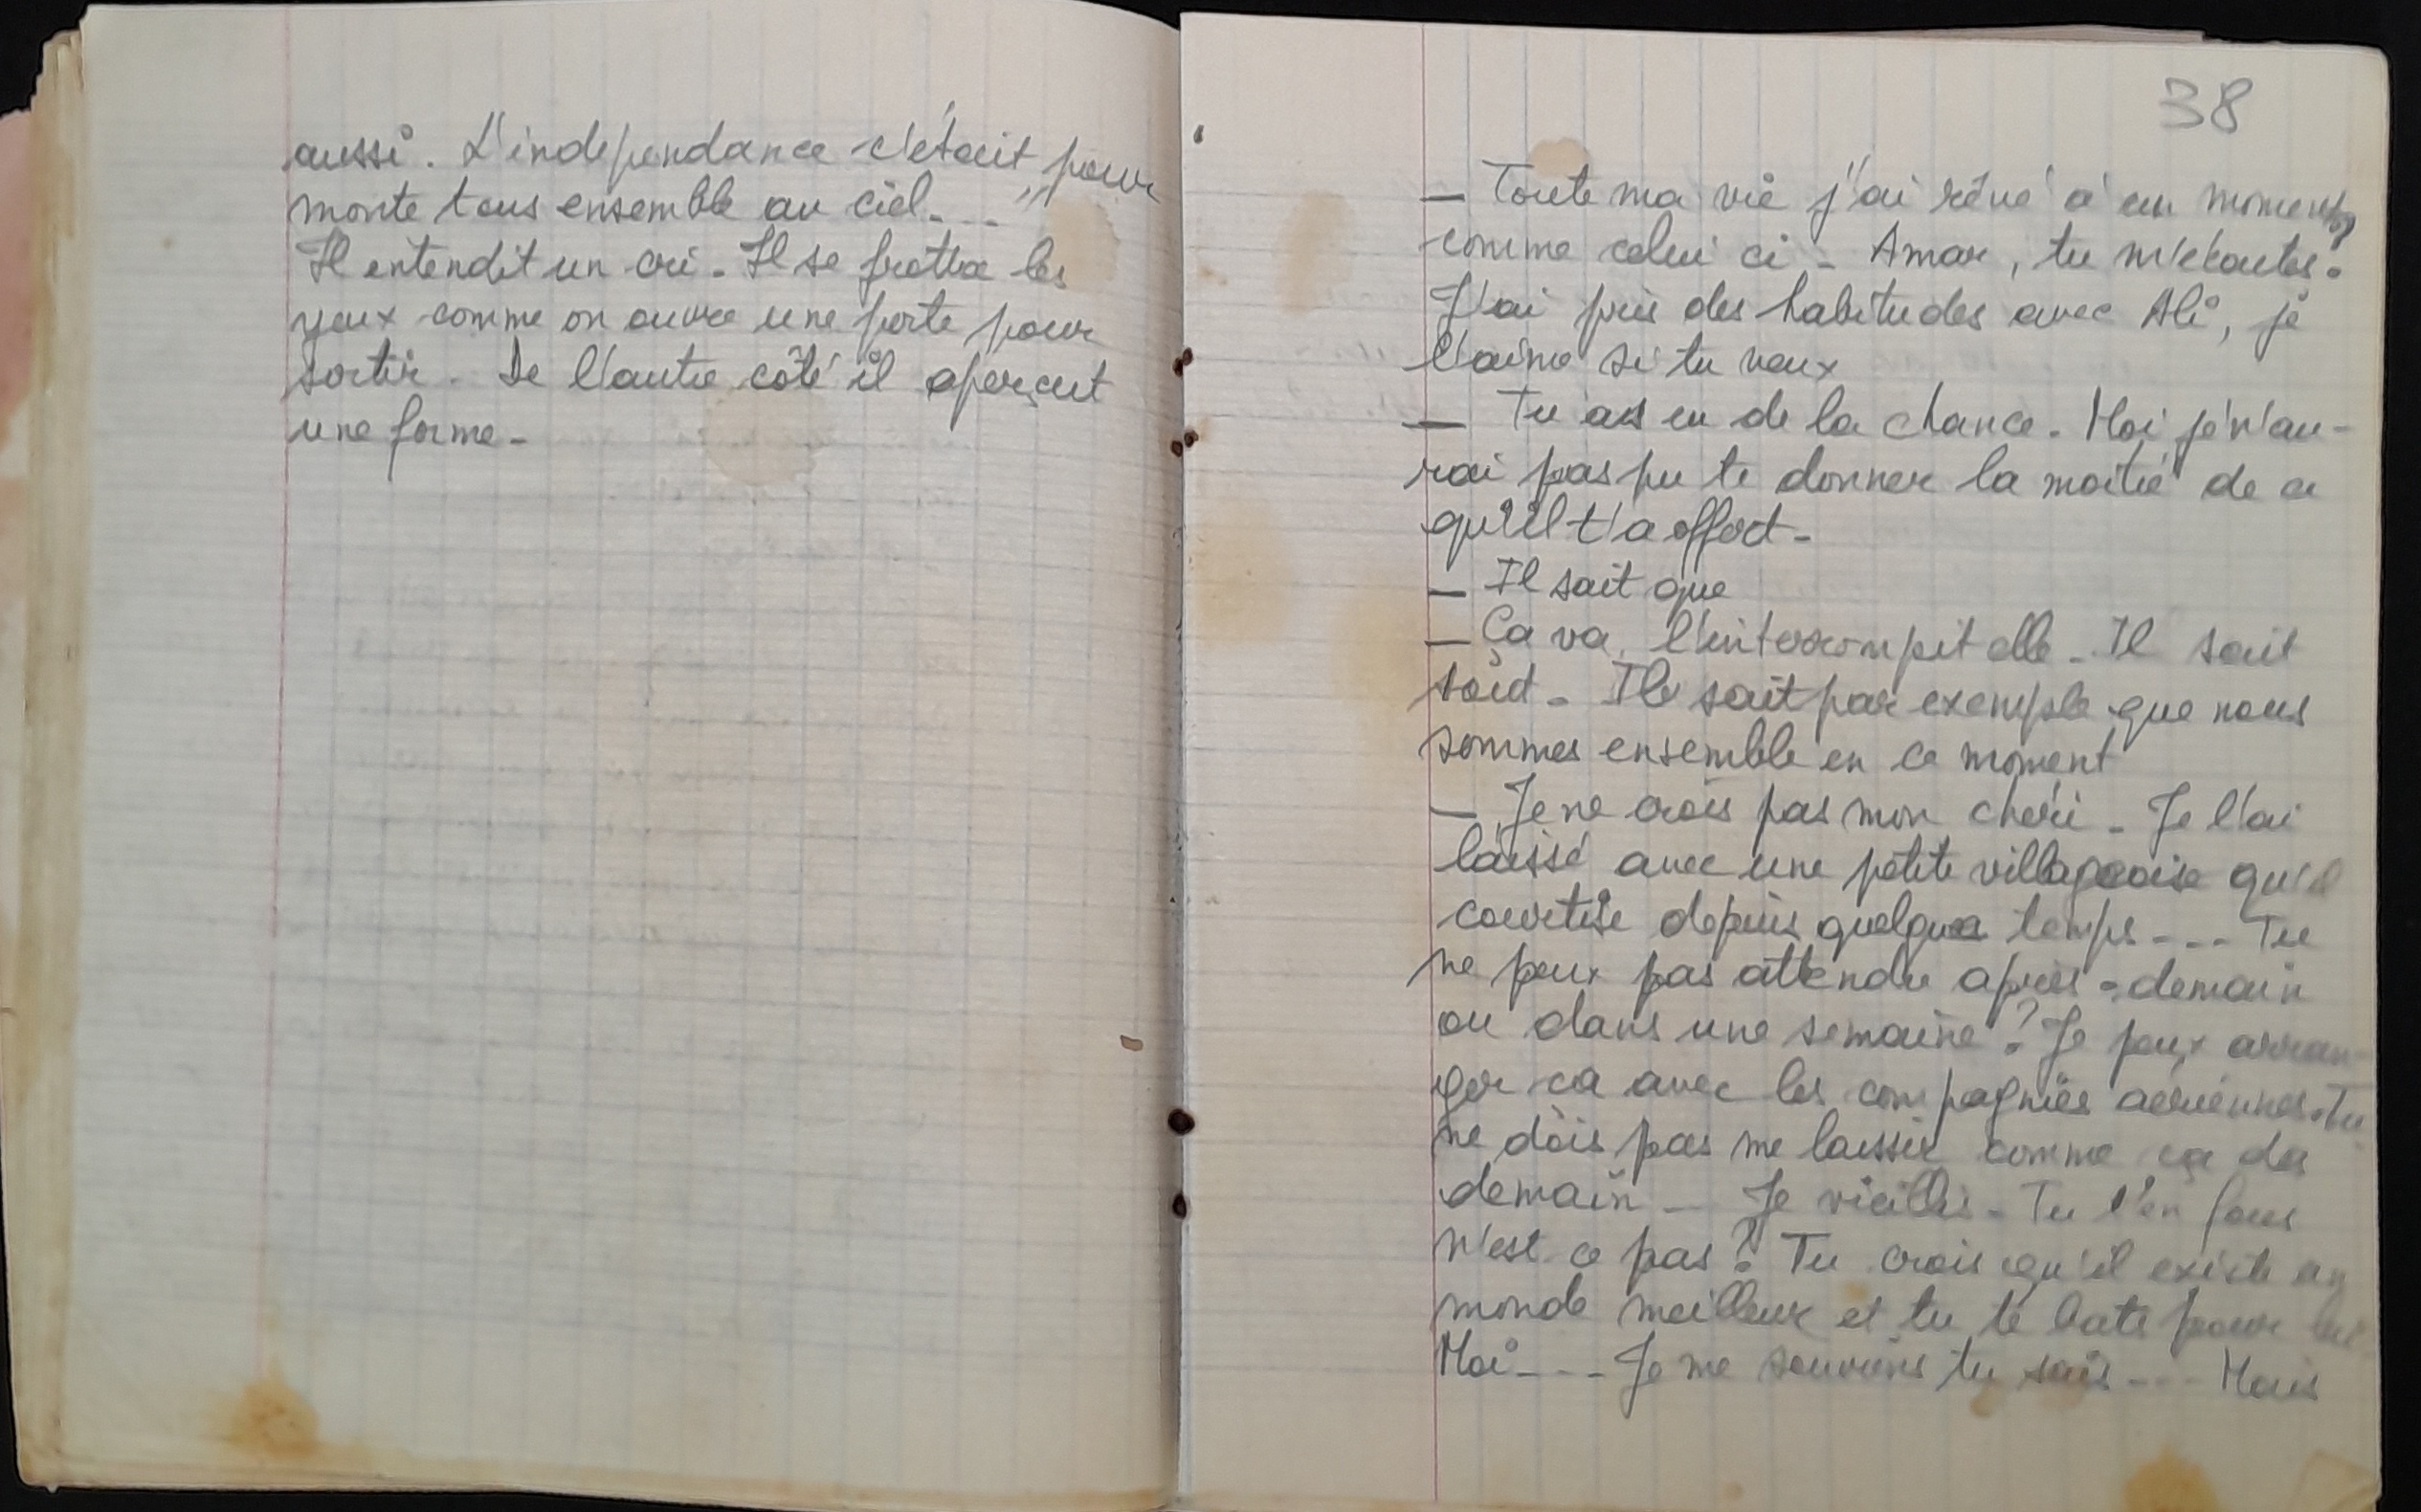 aussi. L'indépendance c'était pour
monte tous ensemble au ciel..."
Il entendit un cri. Il se frotta les
yeux comme on ouvre une porte pour
sortir. De l'autre côté il aperçut
une forme.
38
— Toute ma vie j'ai rêvé à un moment
comme celui ci. Amar, tu m'écoutes?
J'ai pris des habitudes avec Ali, je
l'aime si tu veux
— Tu as eu de la chance. Moi je n'au-
rai pas pu te donner la moitié de ce
qu'il t'a offert.
— Il sait que
— Ça va, l'interrompit elle. Il sait
. Il sait par exemple que nous
sommes ensemble en ce moment
— Je ne crois pas mon chéri. Je l'ai
laissé avec une petite villageoise qu'il
courtise depuis quelques temps... Tu
ne peux pas attendre après-demain
ou dans une semaine? Je peux arran-
ger ca avec les compagnies aeriennes. Tu
ne dois pas me laisser comme ça dès
demain. Je vieillis. Tu t'en fous
n'est ce pas? Tu crois qu'il existe un
monde meilleur et tu te bats pour lui
Moi... Je me souviens tu sais... Mais